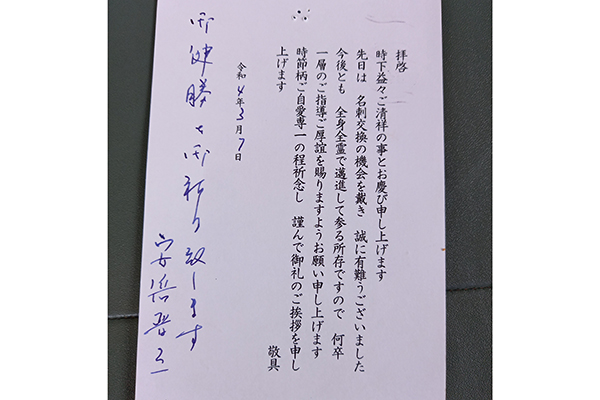 拝啓
時下益々ご清祥の事とお慶び申し上げます
先日は　名刺交換の機会を戴き　誠に有難うございました
今後とも　全身全霊で邁進して参る所存ですので　何卒
一層のご指導ご厚誼を賜りますようお願い申し上げます
時節柄ご自愛専一の程祈念し　謹んで御礼のご挨拶を申し
上げます
敬具
令和4年3月7日
御健勝をお祈り致します
安倍晋三